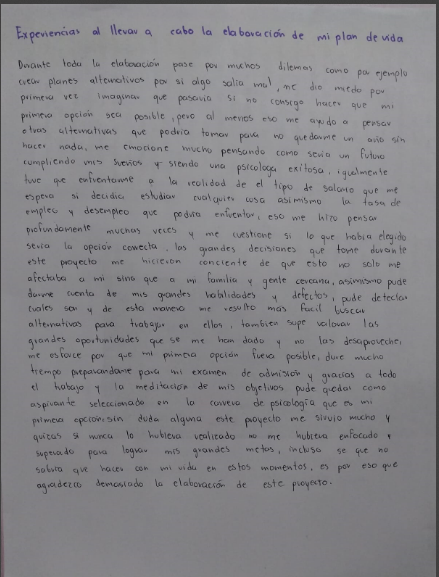 Experiencias al llevar a cabo la elaboración de mi plan de vida
Durante toda la elaboración pase por muchos dilemas como por ejemplo
crear planes alternativos por si algo salia mal, me dio miedo por
primera vez imaginar que pasaria si no consigo hacer que mi
primera opción sea posible, pero al menos eso me ayudo a pensar
otras alternativas que podria tomar para no quedarme un año sin
hacer nada, me emocione mucho pensando como seria un futuro
cumpliendo mis sueños y siendo una psicologa exitosa, igualmente
tuve que enfrentarme a la realidad de el tipo de salario que me
espera si decidia estudiar cualquier cosa asimismo la tasa de
empleo y desempleo que podria enfrentar, eso me hizo pensar
profundamente muchas veces y me cuestione si lo que habia elegido
seria la opción correcta, las grandes decisiones que tome durante
este proyecto me hicieron conciente de que esto no solo me
afectaba a mi sino que a mi familia y gente cercana, asimismo pude
darme cuenta de mis grandes habilidades y defectos, pude detectar
cuales son y de esta manera me resulto mas facil buscar
alternativas para trabajar en ellos, tambien supe valorar las
grandes oportunidades que se me han dado y no las desaproveche,
me esforce por que mi primera opción fuera posible, dure mucho
tiempo preparandome para mi examen de admisión y gracias a todo
el trabajo y la meditación de mis objetivos pude quedar como
aspirante seleccionada en la carrera de psicología que es mi
primera opción, sin duda alguna este proyecto me sirvio mucho y
quizas si nunca lo hubiera realizado no me hubiera enfocado y
superado para lograr mis grandes metas, incluso se que no
sabria que hacer con mi vida en estos momentos, es por eso que
agradezco demasiado la elaboración de este proyecto.